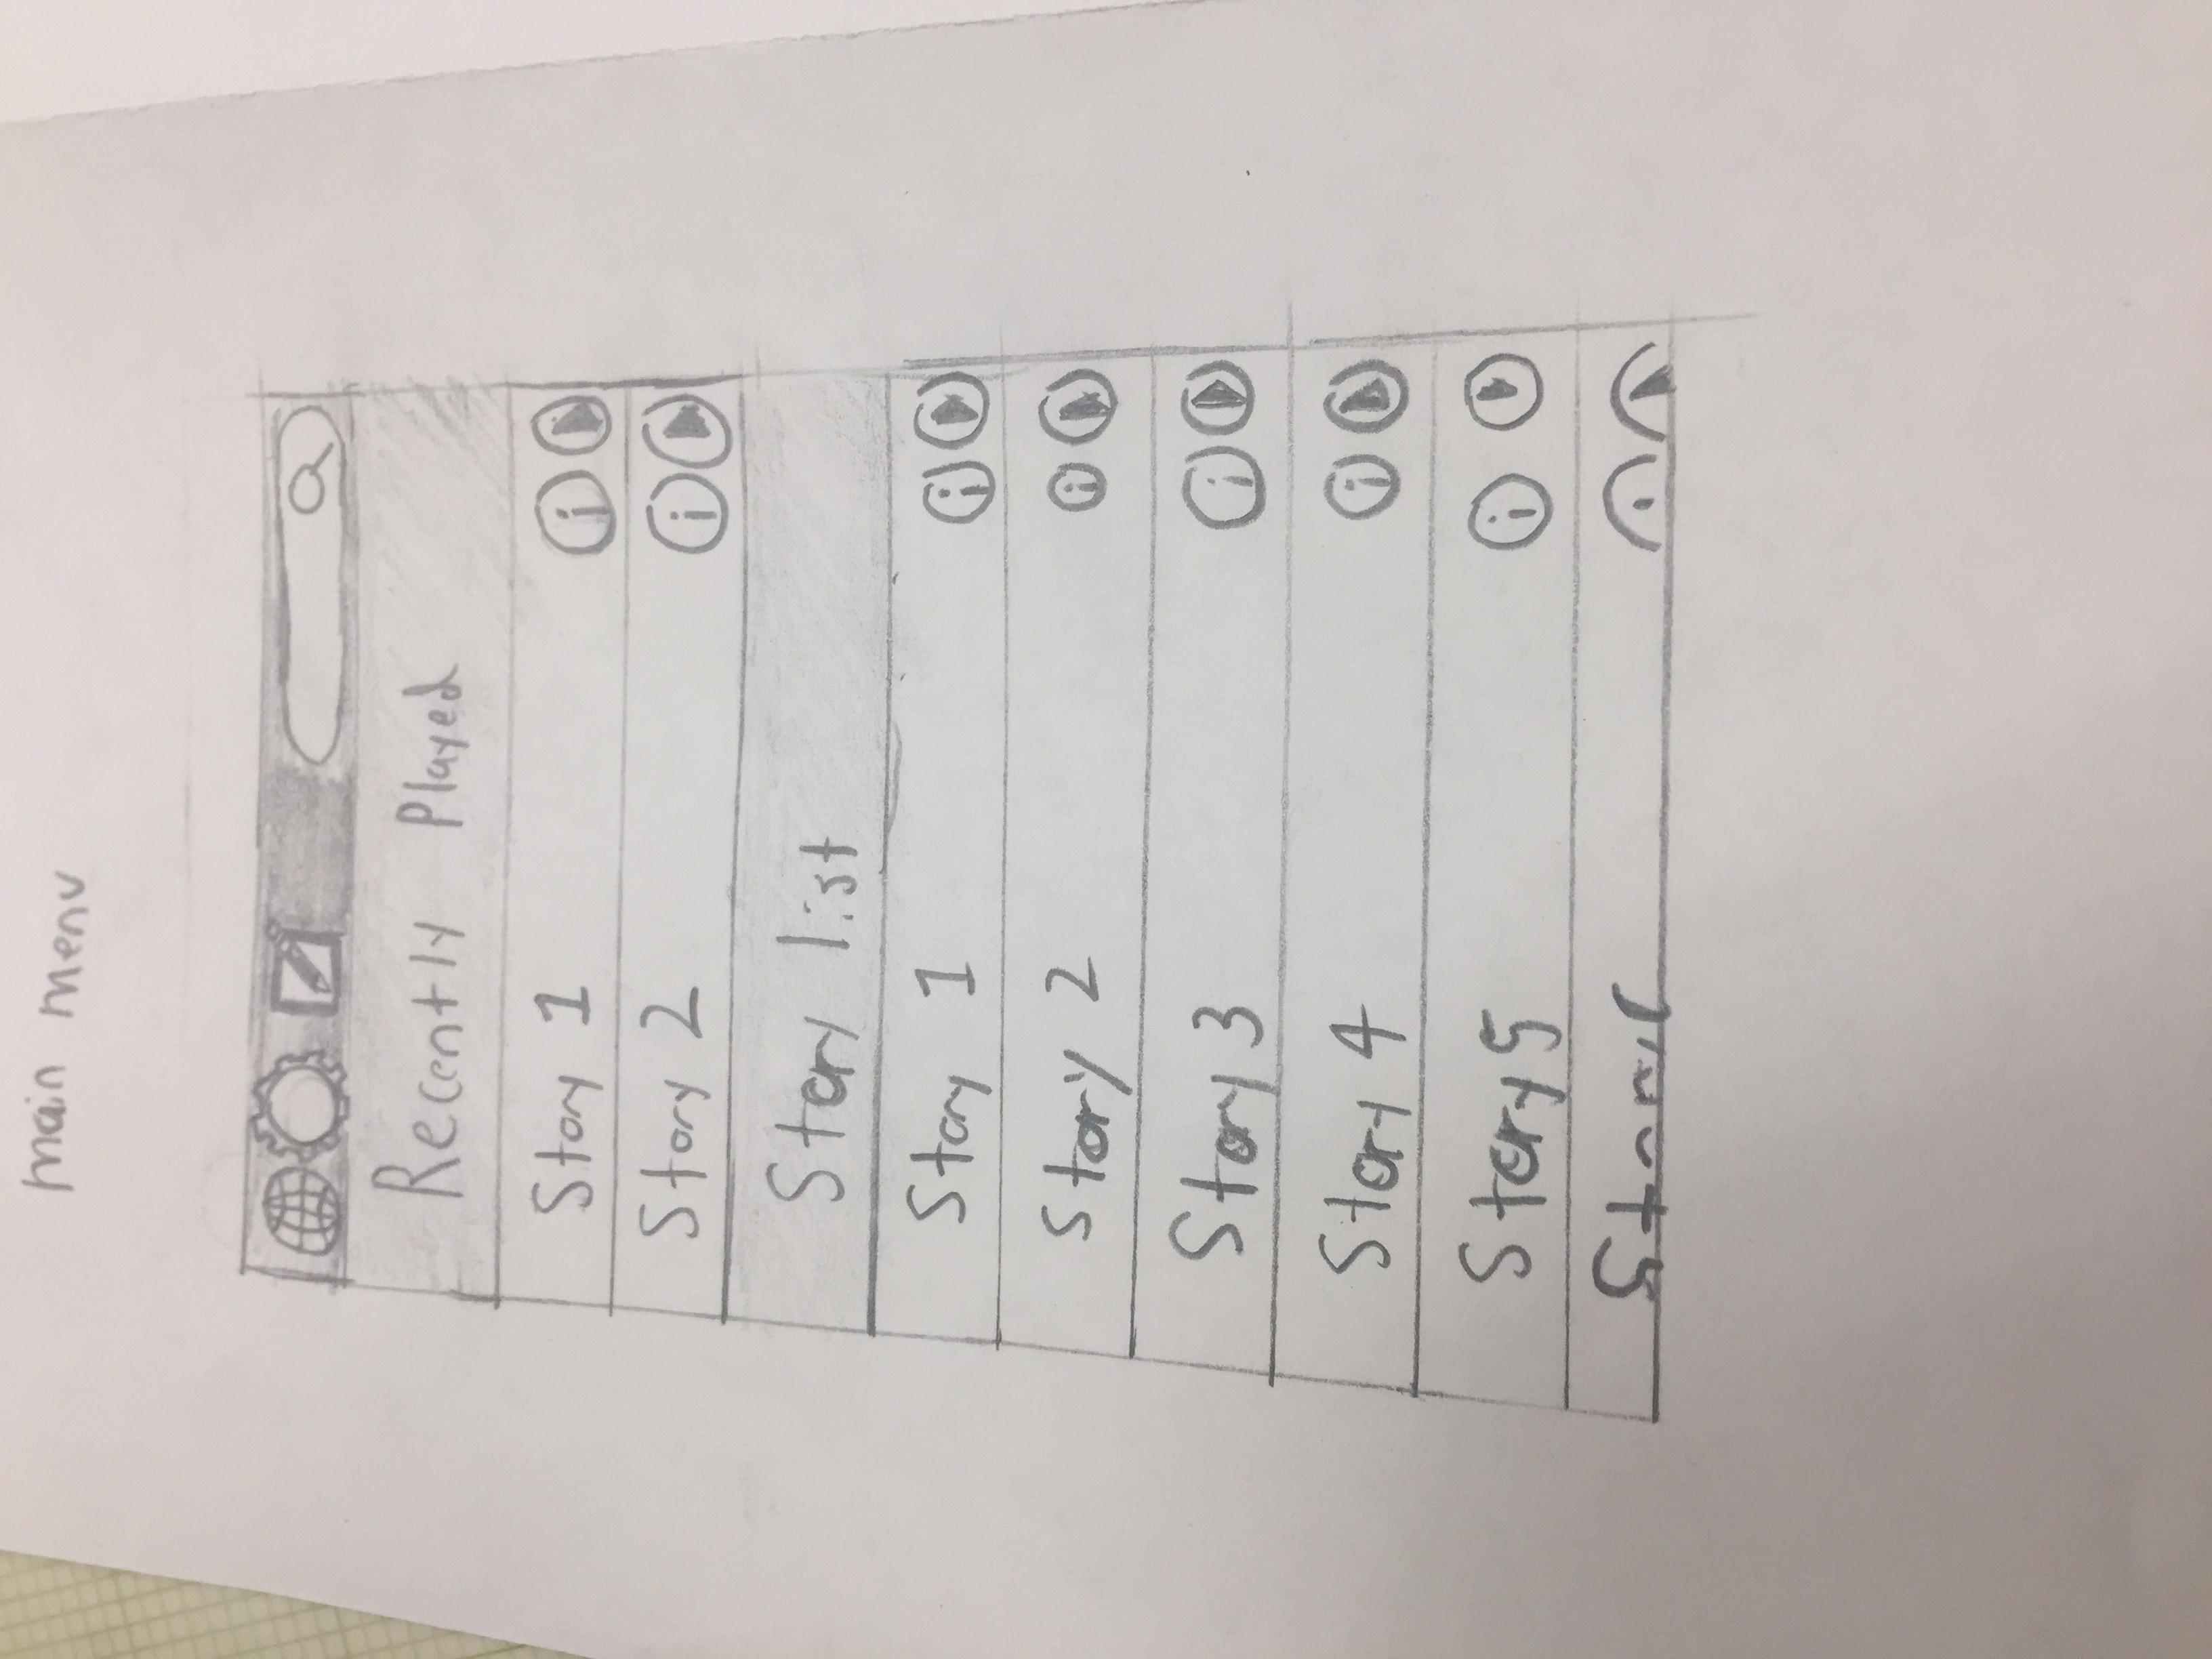 main menu
Recently Played
Story 1
i
Story 2
i
Story list
Story 1
i
Story 2
i
Story 3
i
Story 4
i
Story 5
i